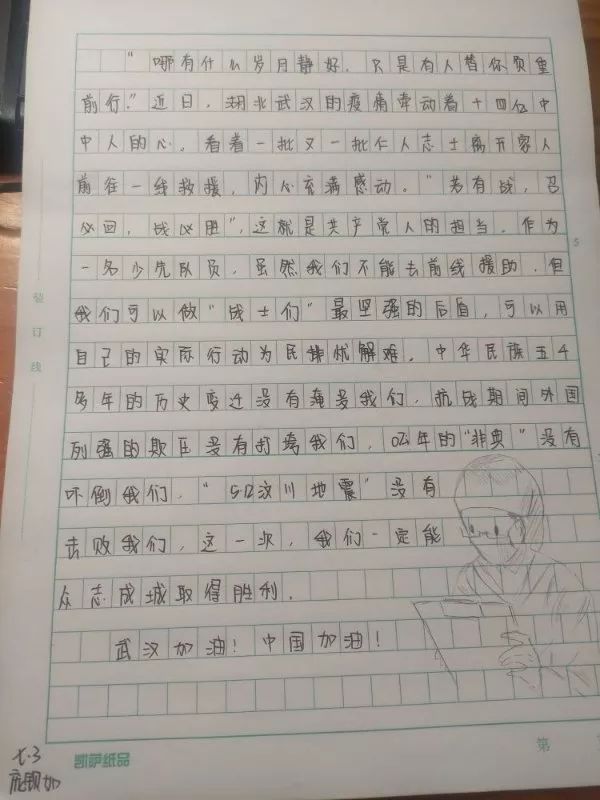 “哪有什么岁月静好,只是有人替你负重
前行。”近日,湖北武汉的疫情牵动着十四亿中
中人的心。看着一批又一批仁人志士离开家人
前往一线救援,内心充满感动。“若有战,召
必回,战必胜”,这就是共产党人的担当。作为
一名少先队员,虽然我们不能去前线援助,但
我们可以做“战士们”最坚强的后盾,可以用
自己的实际行动为民排忧解难。中华民族五千
多年的历史变迁没有淹没我们,抗战期间外国
列强的欺压没有打垮我们,03年的“非典”没有
吓倒我们,“512汶川地震”没有
击败我们,这一次,我们一定能
众志成城取得胜利.
武汉加油!中国加油!
5
装
订
线
凯萨纸品
第
七.3